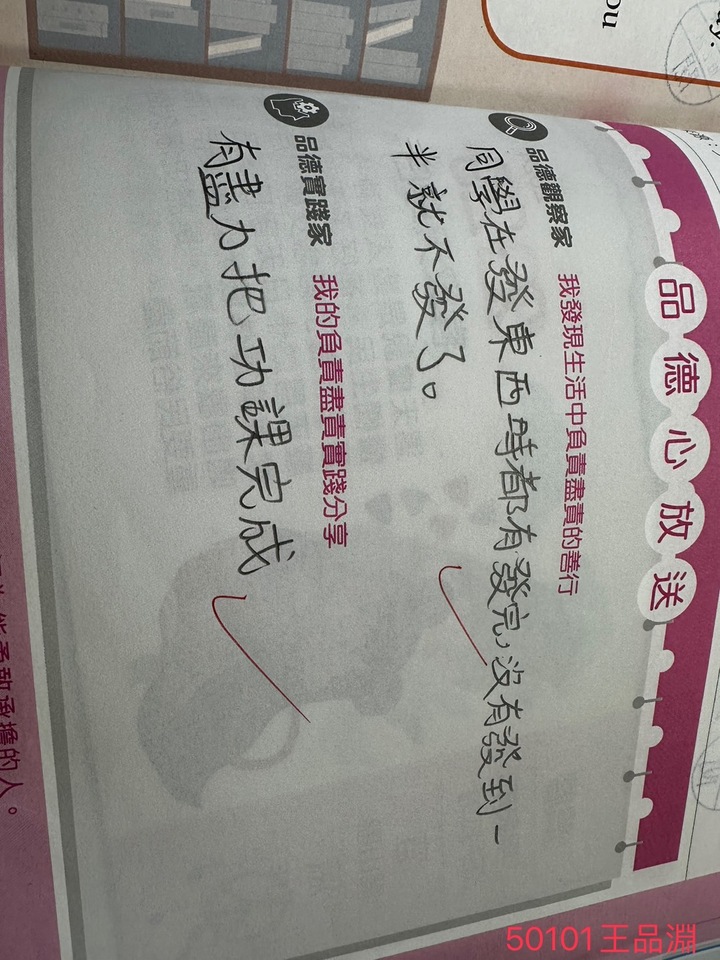 you
品德心放送
品德觀察家 我發現生活中負責盡責的善行
同學在發東西時都有發完,沒有發到一
半就不發了。
品德實踐家 我的負責盡責實踐分享
有盡力把功課完成
承擔的人。
50101王品淵